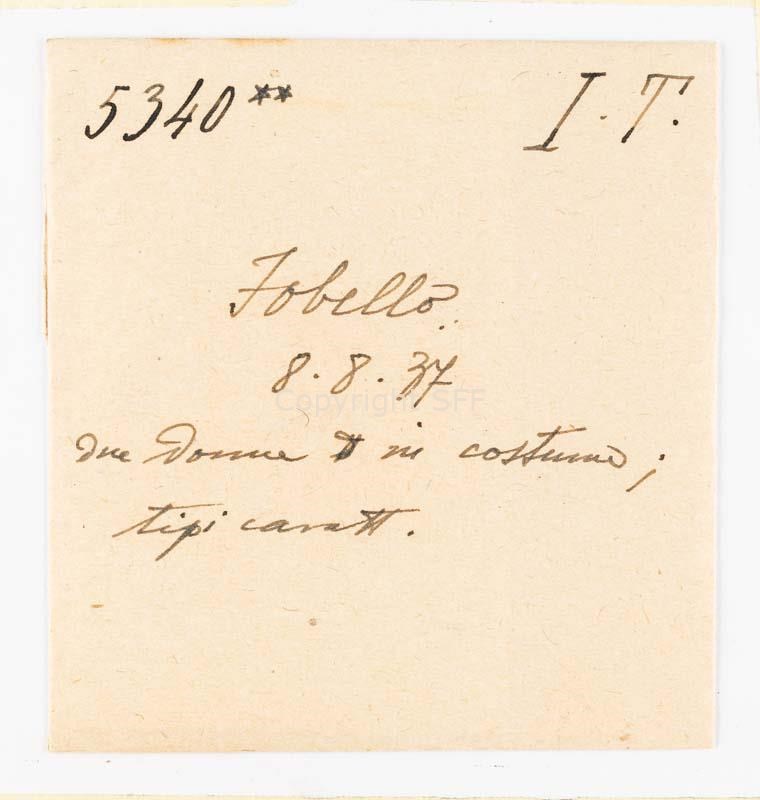 5340** I. T.
Fobello
8. 8. 37
Copyright SFF
due donne in costume;
tipi caratt.